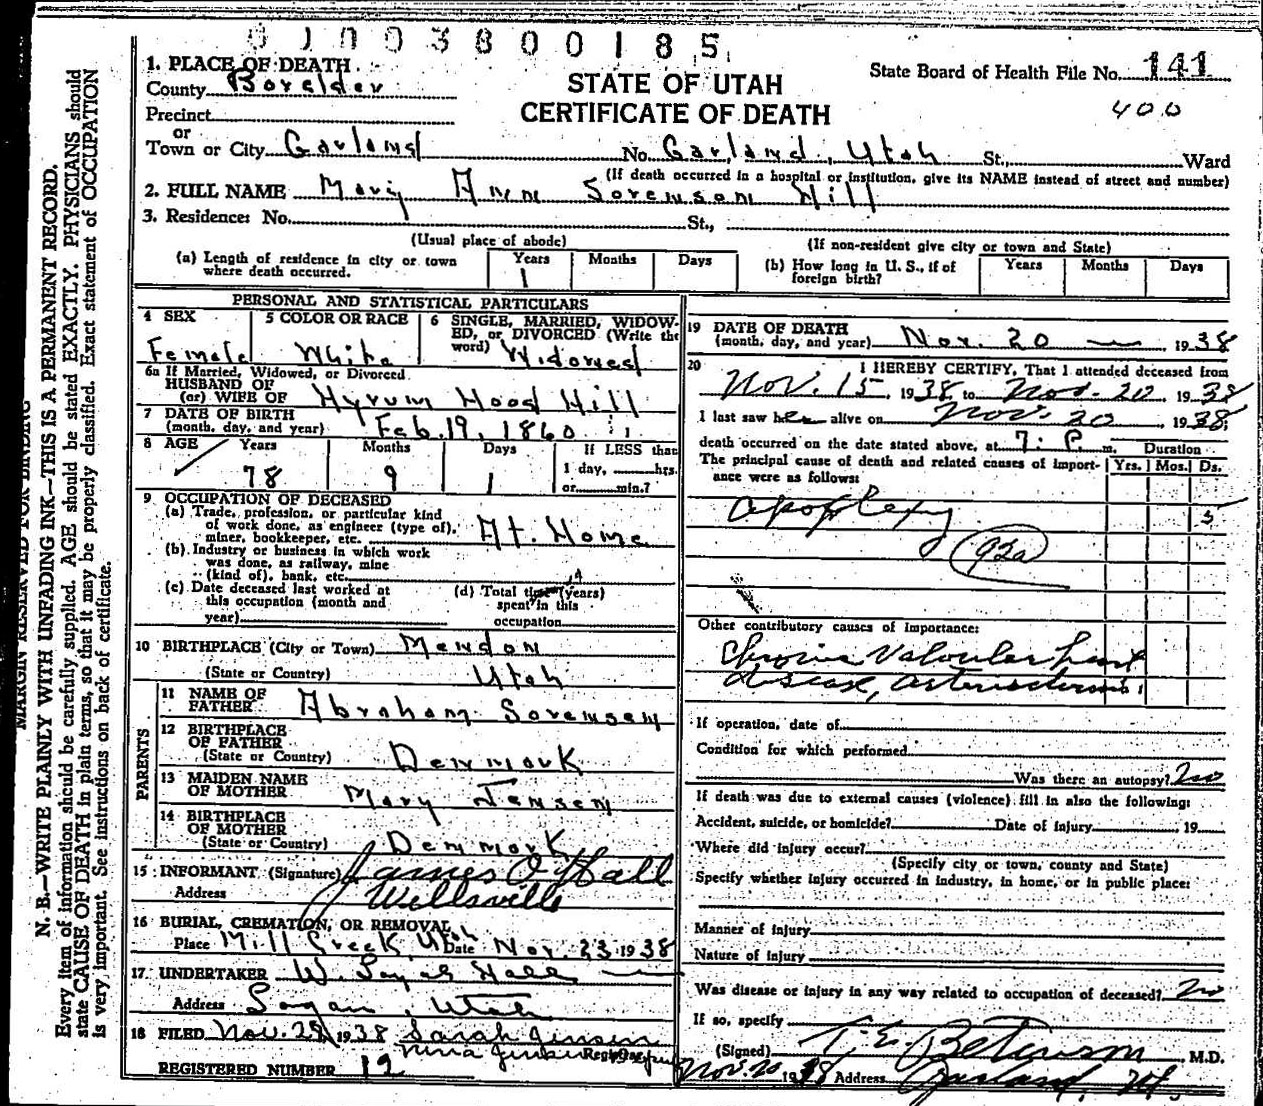 01003800185
1. PLACE OF DEATH
County Boxelder
Precinct
or
Town or City Garland
STATE OF UTAH
CERTIFICATE OF DEATH
State Board of Health File No. 141
400
No. Garland, Utah St., Ward
(If death occurred in a hospital or institution, give its NAME instead of street and number)
2. FULL NAME Mary Ann Sorenson Hill
3. Residence: No. St.,
(Usual place of abode) (If non-resident give city or town and State)
(a) Length of residence in city or town where death occurred. Years 1 Months Days
(b) How long in U. S., if of foreign birth? Years Months Days
PERSONAL AND STATISTICAL PARTICULARS
4 SEX Female
5 COLOR OR RACE White
6 SINGLE, MARRIED, WIDOWED, or DIVORCED (Write the word) Widowed
6a If Married, Widowed, or Divorced
HUSBAND OF
(or) WIFE OF Hyrum Hood Hill
7 DATE OF BIRTH
(month, day, and year) Feb. 19, 1860
8 AGE Years 78 Months 9 Days 1 If LESS than 1 day, hrs. or min.?
9 OCCUPATION OF DECEASED
(a) Trade, profession, or particular kind
of work done, as engineer (type of),
miner, bookkeeper, etc. At. Home
(b) Industry or business in which work
was done, as railway, mine
(kind of), bank, etc.
(c) Date deceased last worked at
this occupation (month and
year)
(d) Total time (years)
spent in this
occupation
10 BIRTHPLACE (City or Town) Mendon
(State or Country) Utah
PARENTS
11 NAME OF
FATHER Abraham Sorensen
12 BIRTHPLACE
OF FATHER
(State or Country) Denmark
13 MAIDEN NAME
OF MOTHER Mary Jensen
14 BIRTHPLACE
OF MOTHER
(State or Country) Denmark
15 INFORMANT (Signature) James O Hall
Address Wellsville
16 BURIAL, CREMATION, OR REMOVAL
Place Mill Creek, Utah Date Nov. 23 1938
17 UNDERTAKER W. Hall
Address Logan, Utah
18 FILED Nov. 28, 1938 Sarah Jensen
Registrar
REGISTERED NUMBER 12
19 DATE OF DEATH
(month, day, and year) Nov. 20 — , 1938
20 I HEREBY CERTIFY, That I attended deceased from
Nov. 15, 1938, to Nov. 20, 1938
I last saw her alive on Nov. 20, 1938;
death occurred on the date stated above, at 7: P. m.
The principal cause of death and related causes of importance were as follows:
Duration
Yrs. Mos. Ds.
Apoplexy 5
92a
Other contributory causes of importance:
Chronic Valvular heart
disease, arteriosclerosis
If operation, date of
Condition for which performed
Was there an autopsy? No
If death was due to external causes (violence) fill in also the following:
Accident, suicide, or homicide? Date of injury , 19
Where did injury occur?
(Specify city or town, county and State)
Specify whether injury occurred in industry, in home, or in public place:
Manner of injury
Nature of injury
Was disease or injury in any way related to occupation of deceased? No
If so, specify
(Signed) M.D.
Nov. 20 1938 Address Garland, Ut.
MARGIN RESERVED FOR BINDING
N. B.—WRITE PLAINLY WITH UNFADING INK—THIS IS A PERMANENT RECORD.
Every item of information should be carefully supplied. AGE should be stated EXACTLY. PHYSICIANS should
state CAUSE OF DEATH in plain terms, so that it may be properly classified. Exact statement of OCCUPATION
is very important. See instructions on back of certificate.